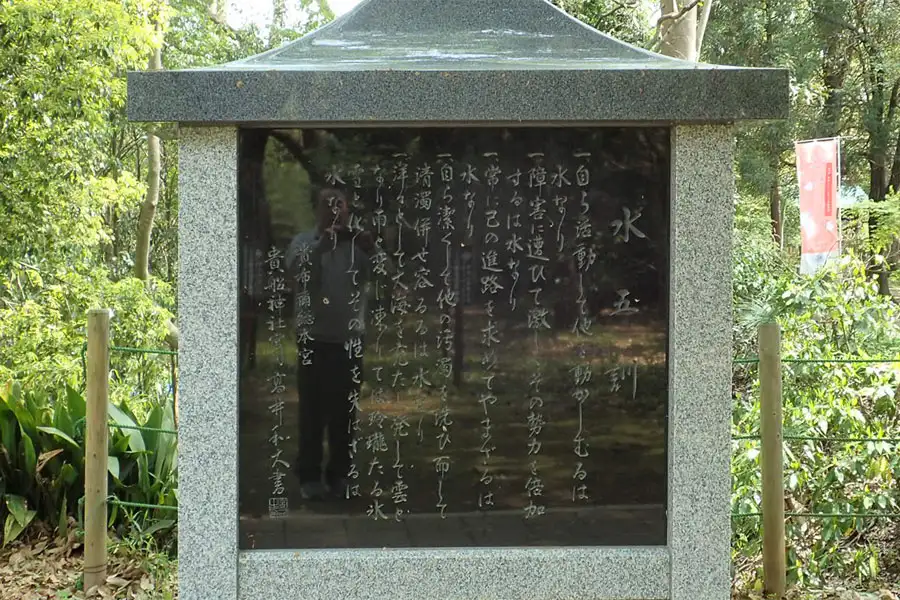 水五訓
一、自ら活動して他を動かしむるは
水なり
一、障害に遭ひて激しその勢力を倍加
するは水なり
一、常に己の進路を求めてやまざるは
水なり
一、自ら潔くして他の汚濁を洗ひ而して
清濁併せ容るるは水なり
一、洋々として大海をみたし発して雲と
なり雨と変じ凍して玲瓏たる氷
雪と化してその性を失はざるは
水なり
貴布禰総本宮
貴船神社宮司 高井和大書